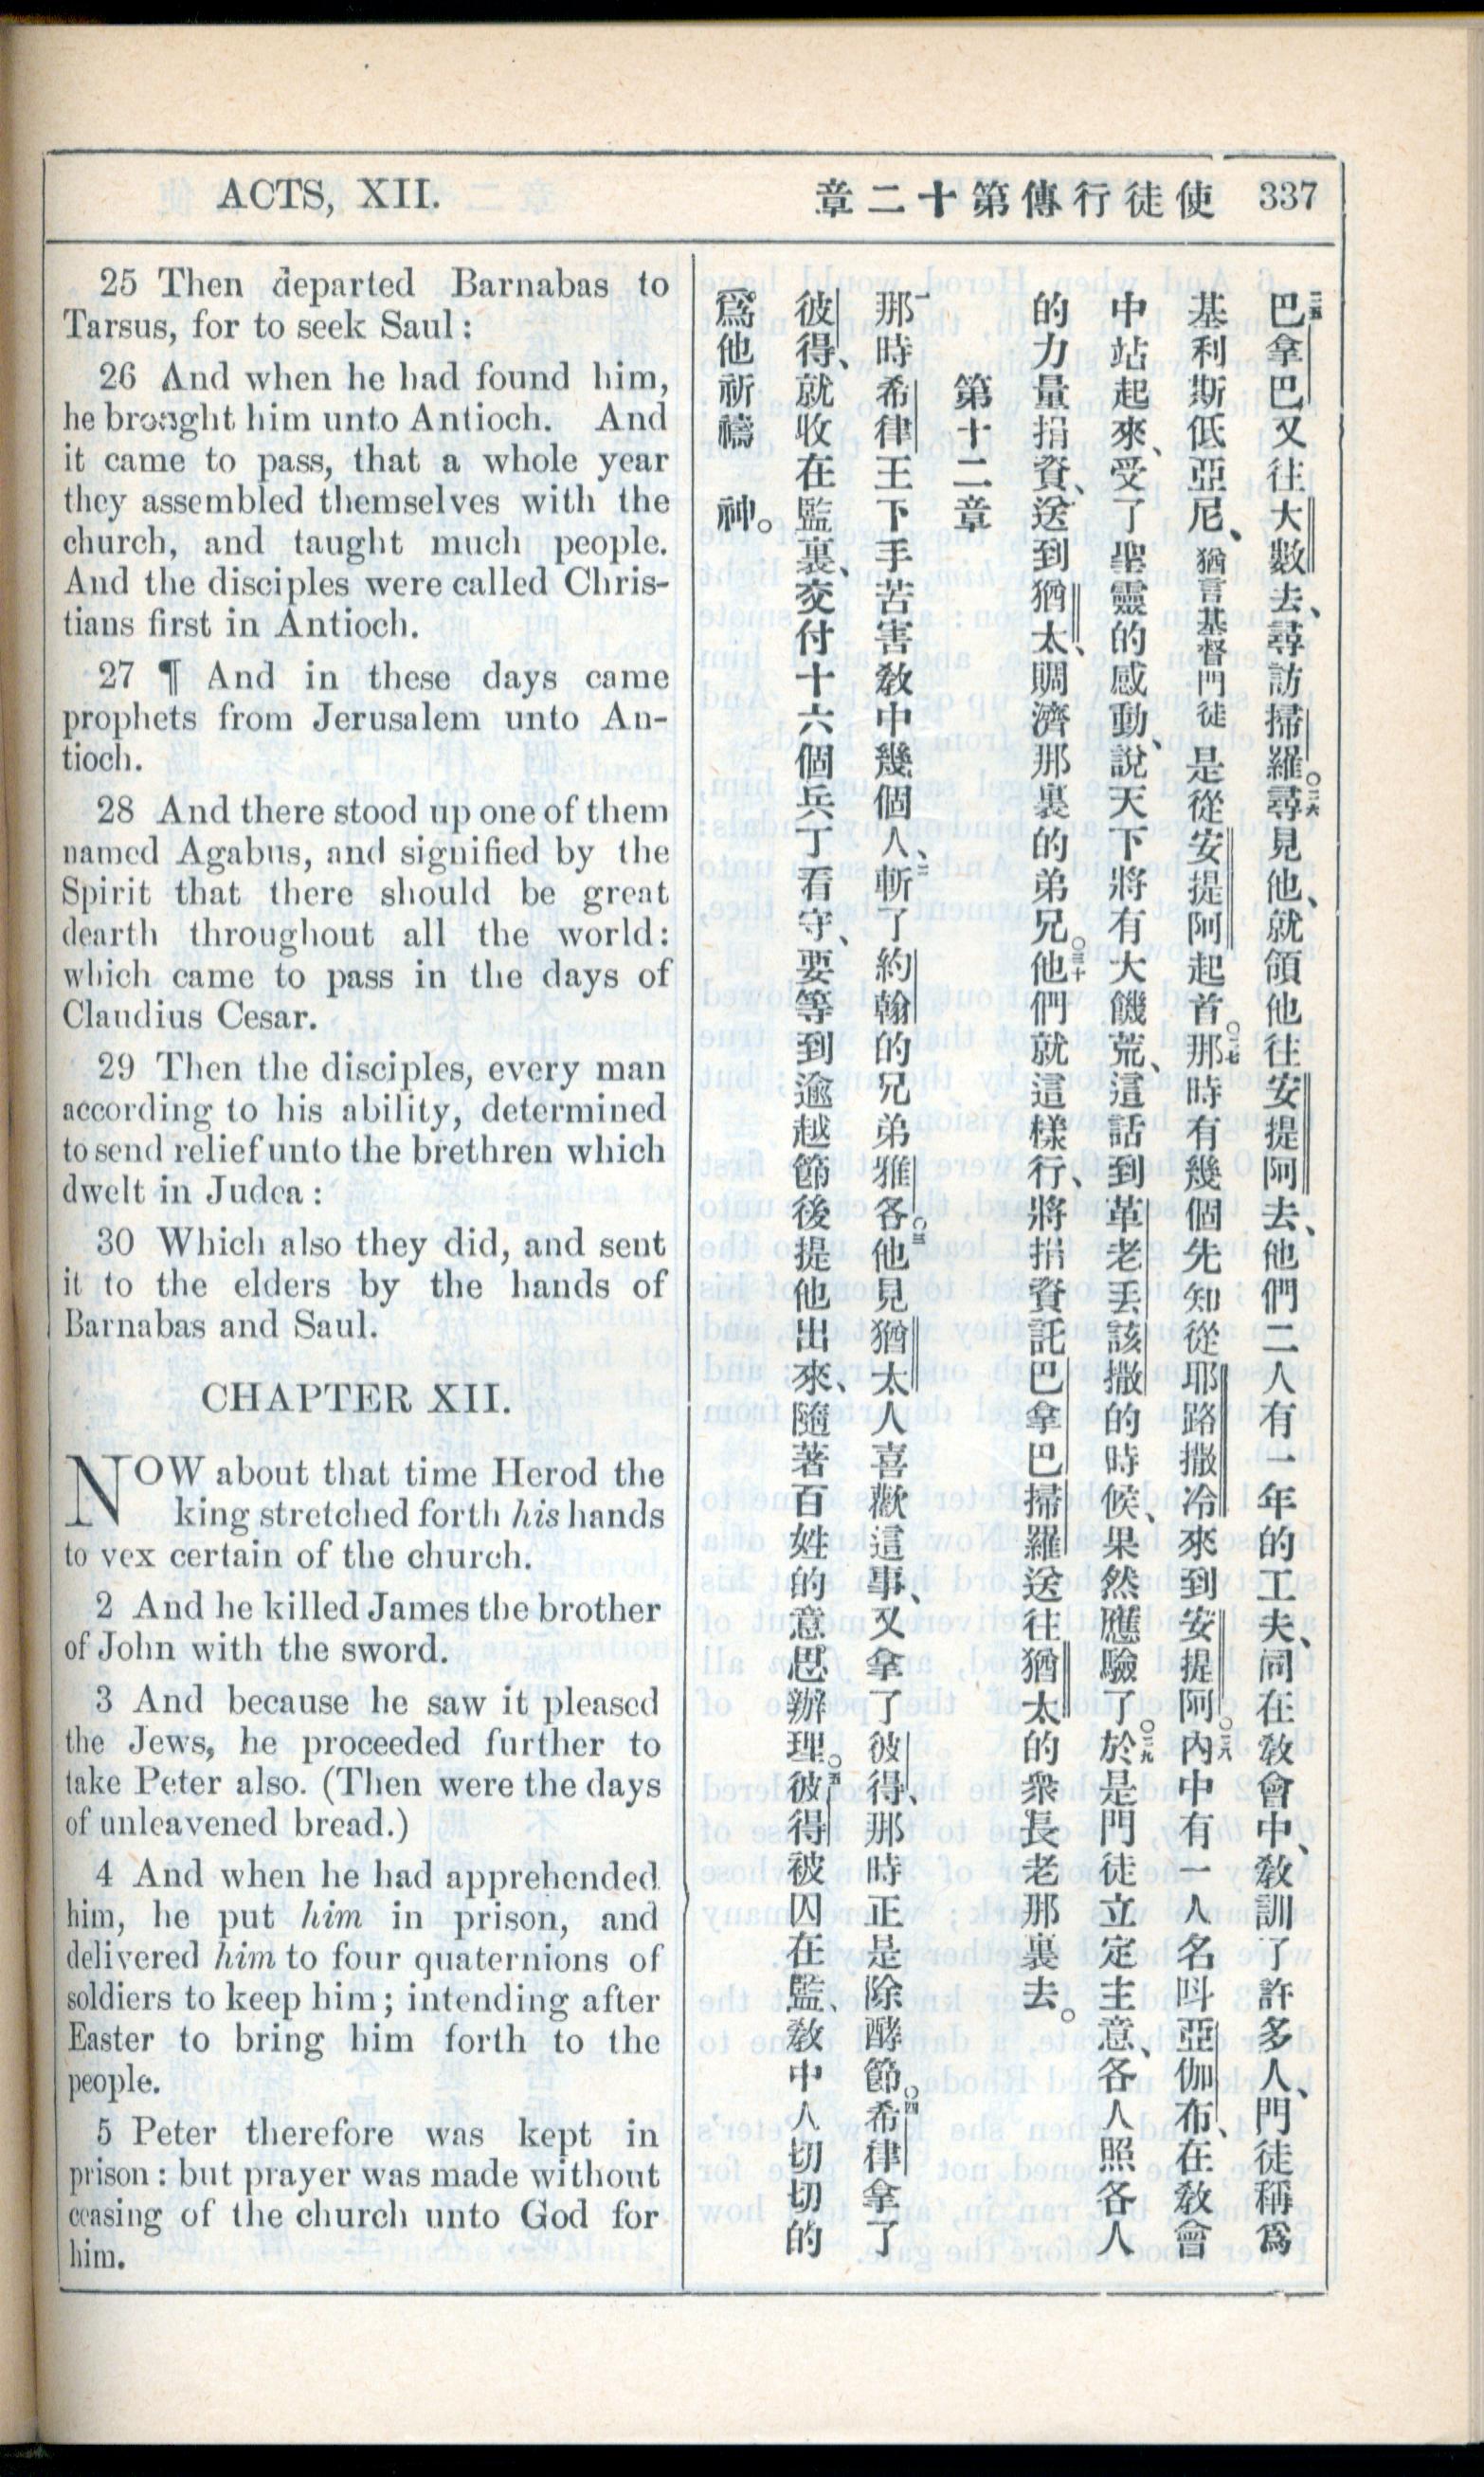 ACTS, XII.
章二十第傳行徒使 337
25 Then departed Barnabas to
Tarsus, for to seek Saul:
26 And when he had found him,
he brought him unto Antioch. And
it came to pass, that a whole year
they assembled themselves with the
church, and taught much people.
And the disciples were called Chris-
tians first in Antioch.
27 ¶ And in these days came
prophets from Jerusalem unto An-
tioch.
28 And there stood up one of them
named Agabus, and signified by the
Spirit that there should be great
dearth throughout all the world:
which came to pass in the days of
Claudius Cesar.
29 Then the disciples, every man
according to his ability, determined
to send relief unto the brethren which
dwelt in Judea:
30 Which also they did, and sent
it to the elders by the hands of
Barnabas and Saul.
CHAPTER XII.
NOW about that time Herod the
king stretched forth his hands
to vex certain of the church.
2 And he killed James the brother
of John with the sword.
3 And because he saw it pleased
the Jews, he proceeded further to
take Peter also. (Then were the days
of unleavened bread.)
4 And when he had apprehended
him, he put him in prison, and
delivered him to four quaternions of
soldiers to keep him; intending after
Easter to bring him forth to the
people.
5 Peter therefore was kept in
prison: but prayer was made without
ceasing of the church unto God for
him.
二五巴拿巴又往大數去、尋訪掃羅。二六尋見他、就領他往安提阿去、他們二人有一年的工夫、同在敎會中、敎訓了許多人、門徒稱爲
基利斯低亞尼、猶言基督門徒 是從安提阿起首。二七那時有幾個先知從耶路撒冷來到安提阿。二八內中有一人名呌亞伽布、在敎會
中站起來、受了聖靈的感動、說天下將有大饑荒、這話到革老丟該撒的時候、果然應驗了。二九於是門徒立定主意、各人照各人
的力量捐資、送到猶太、賙濟那裏的弟兄。三十他們就這樣行、將捐資託巴拿巴掃羅送往猶太的衆長老那裏去。
第十二章
一那時希律王下手苦害敎中幾個人、二斬了約翰的兄弟雅各。三他見猶太人喜歡這事、又拿了彼得、那時正是除酵節。四希律拿了
彼得、就收在監裏、交付十六個兵丁看守、要等到逾越節後提他出來、隨著百姓的意思辦理。五彼得被囚在監、敎中人切切的
爲他祈禱 神。